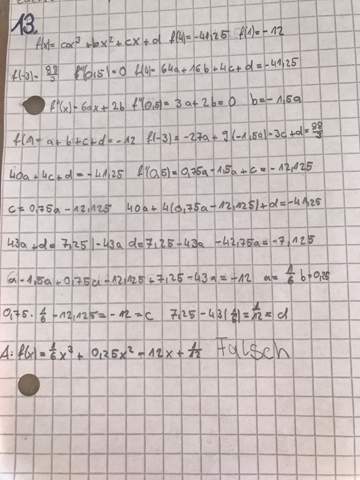 13.
f(x)= ax³+bx²+cx+d f(4)=-41,25 f(1)=-12
f(-3)= 88/3 f''(0,5)=0 f(4)= 64a+16b+4c+d=-41,25
f''(x)=6ax+2b f''(0,5)=3a+2b=0 b=-1,5a
f(1)=a+b+c+d=-12 f(-3)=-27a+9(-1,5a)-3c+d=88/3
40a+4c+d=-41,25 f'(0,5)=0,75a-1,5a+c=-12,125
c=0,75a-12,125 40a+4(0,75a-12,125)+d=-41,25
43a+d=7,25 |-43a d=7,25-43a -42,75a=-7,125
a-1,5a+0,75a-12,125+7,25-43a=-12 a=1/6 b=0,25
0,75·1/6-12,125=-12=c 7,25-43(1/6)=1/12=d
A: f(x)=1/6x³+0,25x²-12x+1/12 Falsch